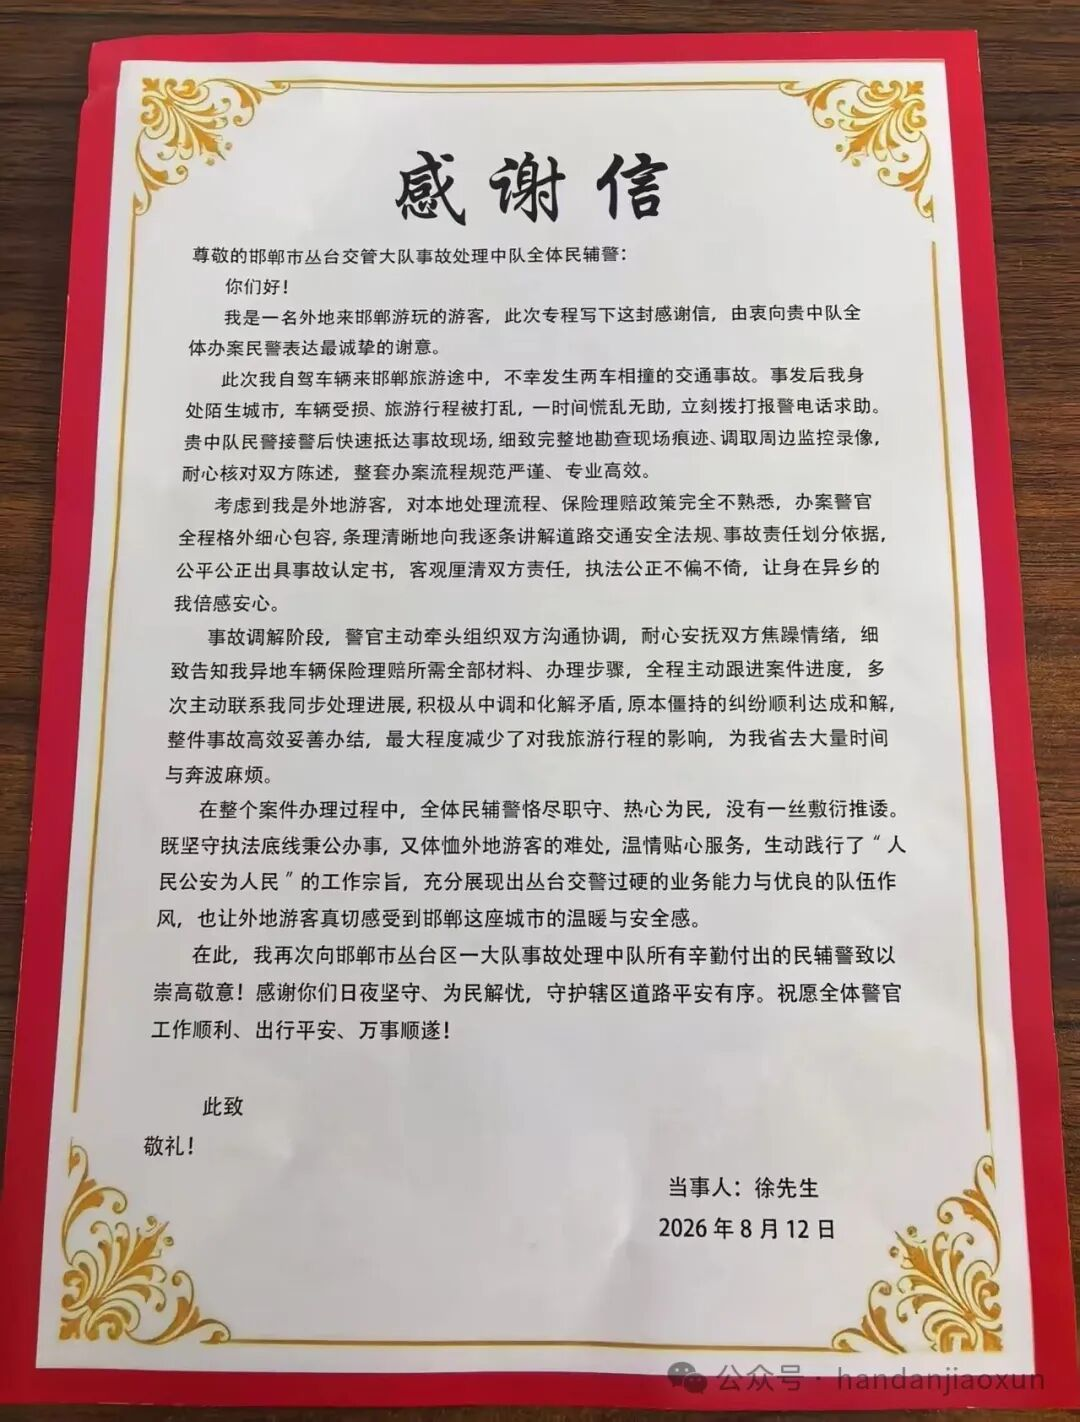 感谢信
尊敬的邯郸市丛台交管大队事故处理中队全体民辅警：
你们好！
我是一名外地来邯郸游玩的游客，此次专程写下这封感谢信，由衷向贵中队全
体办案民警表达最诚挚的谢意。
此次我自驾车辆来邯郸旅游途中，不幸发生两车相撞的交通事故。事发后我身
处陌生城市，车辆受损、旅游行程被打乱，一时间慌乱无助，立刻拨打报警电话求助。
贵中队民警接警后快速抵达事故现场，细致完整地勘查现场痕迹、调取周边监控录像，
耐心核对双方陈述，整套办案流程规范严谨、专业高效。
考虑到我是外地游客，对本地处理流程、保险理赔政策完全不熟悉，办案警官
全程格外细心包容，条理清晰地向我逐条讲解道路交通安全法规、事故责任划分依据，
公平公正出具事故认定书，客观厘清双方责任，执法公正不偏不倚，让身在异乡的
我倍感安心。
事故调解阶段，警官主动牵头组织双方沟通协调，耐心安抚双方焦躁情绪，细
致告知我异地车辆保险理赔所需全部材料、办理步骤，全程主动跟进案件进度，多
次主动联系我同步处理进展，积极从中调和化解矛盾，原本僵持的纠纷顺利达成和解，
整件事故高效妥善办结，最大程度减少了对我旅游行程的影响，为我省去大量时间
与奔波麻烦。
在整个案件办理过程中，全体民辅警恪尽职守、热心为民，没有一丝敷衍推诿。
既坚守执法底线秉公办事，又体恤外地游客的难处，温情贴心服务，生动践行了“人
民公安为人民”的工作宗旨，充分展现出丛台交警过硬的业务能力与优良的队伍作
风，也让外地游客真切感受到邯郸这座城市的温暖与安全感。
在此，我再次向邯郸市丛台区一大队事故处理中队所有辛勤付出的民辅警致以
崇高敬意！感谢你们日夜坚守、为民解忧，守护辖区道路平安有序。祝愿全体警官
工作顺利、出行平安、万事顺遂！
此致
敬礼！
当事人：徐先生
2026年8月12日
公众号·handanjiaoxun